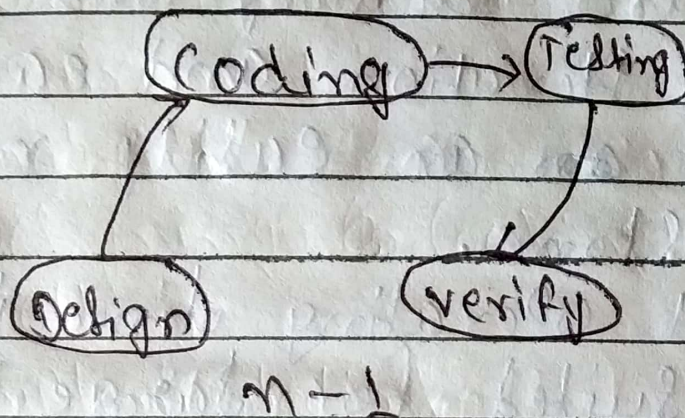 Coding Testing
Design verify
n-1